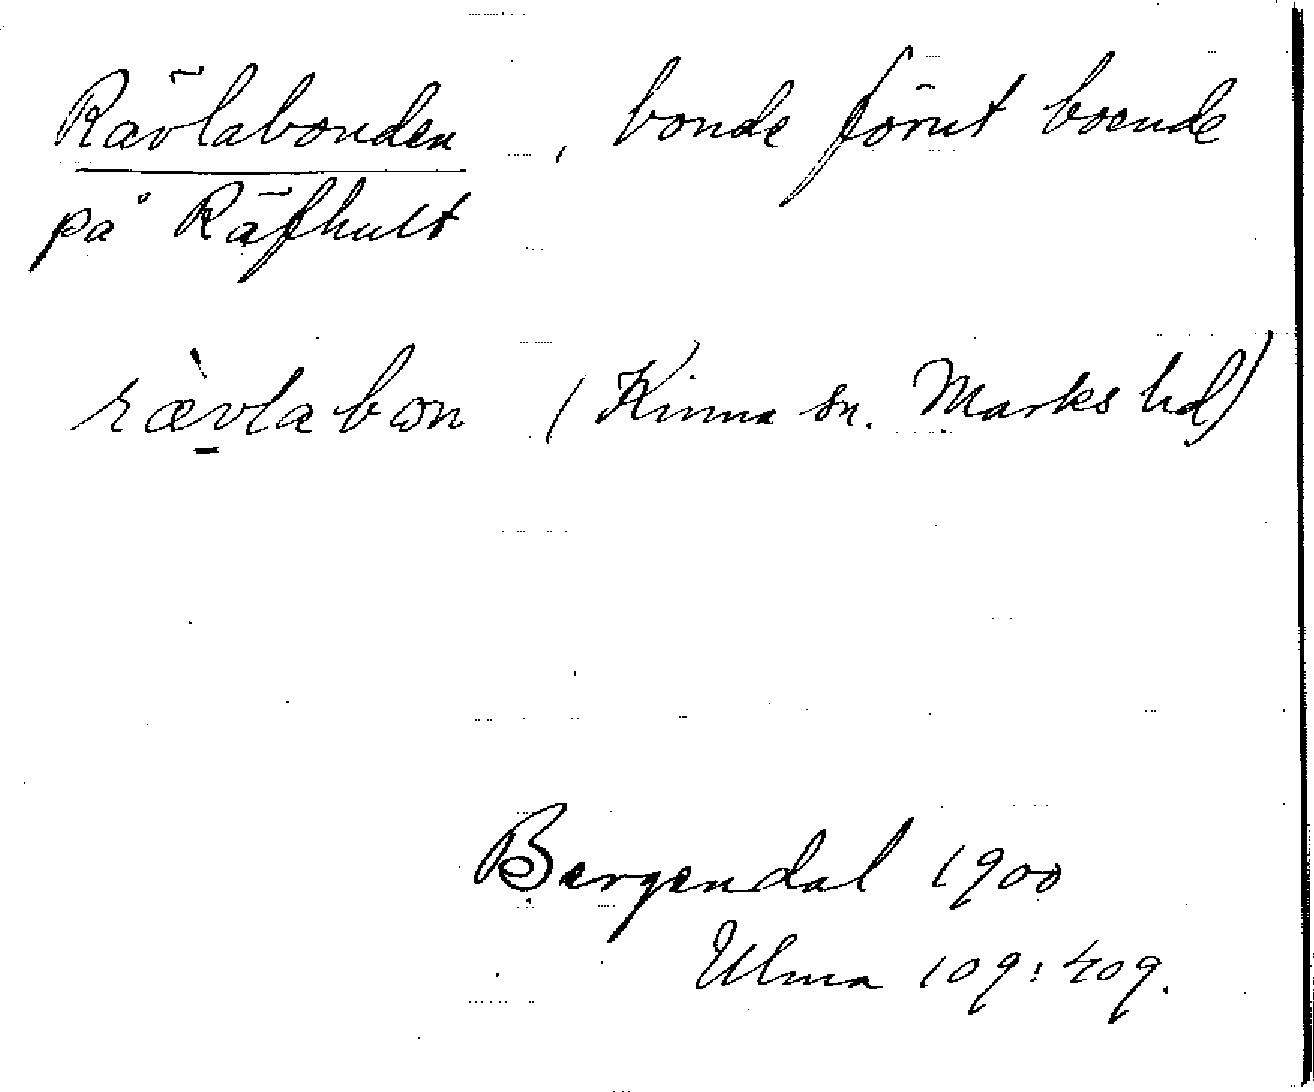 Rävlabonden, bonde förut boende
på Räfhult
rævlabon (Kinna sn. Marks hd)
Bergendal 1900
Ulma 109:409.